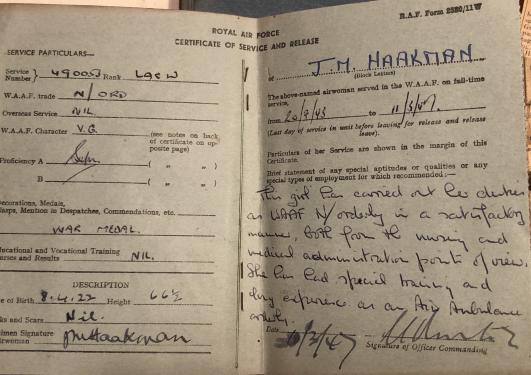 R.A.F. Form 2580/11W
ROYAL AIR FORCE
CERTIFICATE OF SERVICE AND RELEASE
SERVICE PARTICULARS—
Service Number } Rank LACW
W.A.A.F. trade N/ORD
Overseas Service NIL
W.A.A.F. Character V.G.
(see notes on back of certificate on opposite page)
Proficiency A ( " " )
B ( " " )
Decorations, Medals,
Clasps, Mention in Despatches, Commendations, etc.
WAR MEDAL.
Educational and Vocational Training
Courses and Results NIL.
DESCRIPTION
Date of Birth 8.4.22 Height 66½
Marks and Scars Nil.
Specimen Signature
of Airwoman JMHaakman
of J.M. HAAKMAN
(Block Letters)
The above-named airwoman served in the W.A.A.F. on full-time
service,
from to 11/5/47.
(Last day of service in unit before leaving for release and release
leave).
Particulars of her Service are shown in the margin of this
Certificate.
Brief statement of any special aptitudes or qualities or any
special types of employment for which recommended:—
This girl has carried out her duties
as WAAF N/orderly in a satisfactory
manner, both from the nursing and
medical administration point of view.
She has had special training and
experience as an Air Ambulance
orderly.
Date /3/47
Signature of Officer Commanding